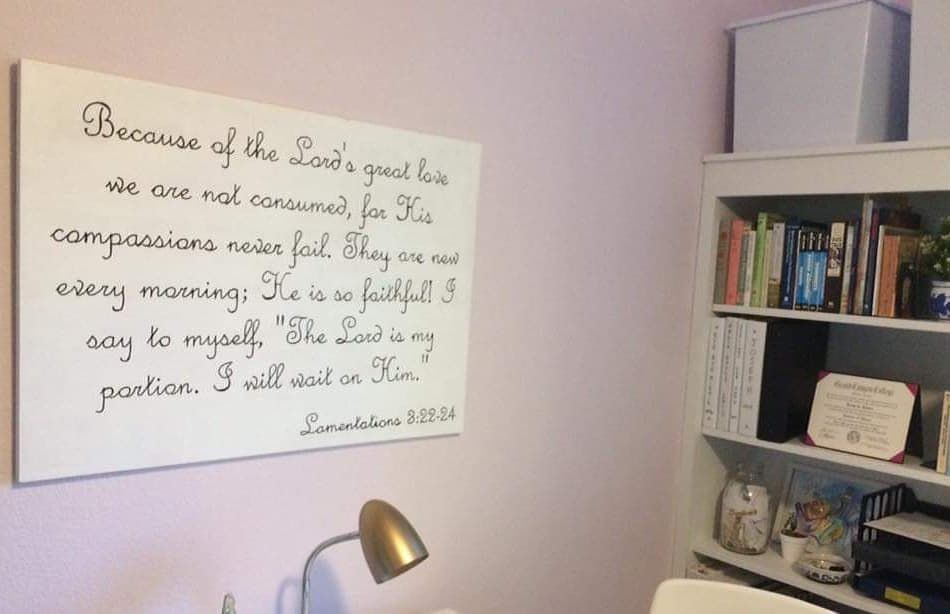 Because of the Lord's great love
we are not consumed, for His
compassions never fail. They are new
every morning; He is so faithful! I
say to myself, "The Lord is my
portion. I will wait on Him."
Lamentations 3:22-24